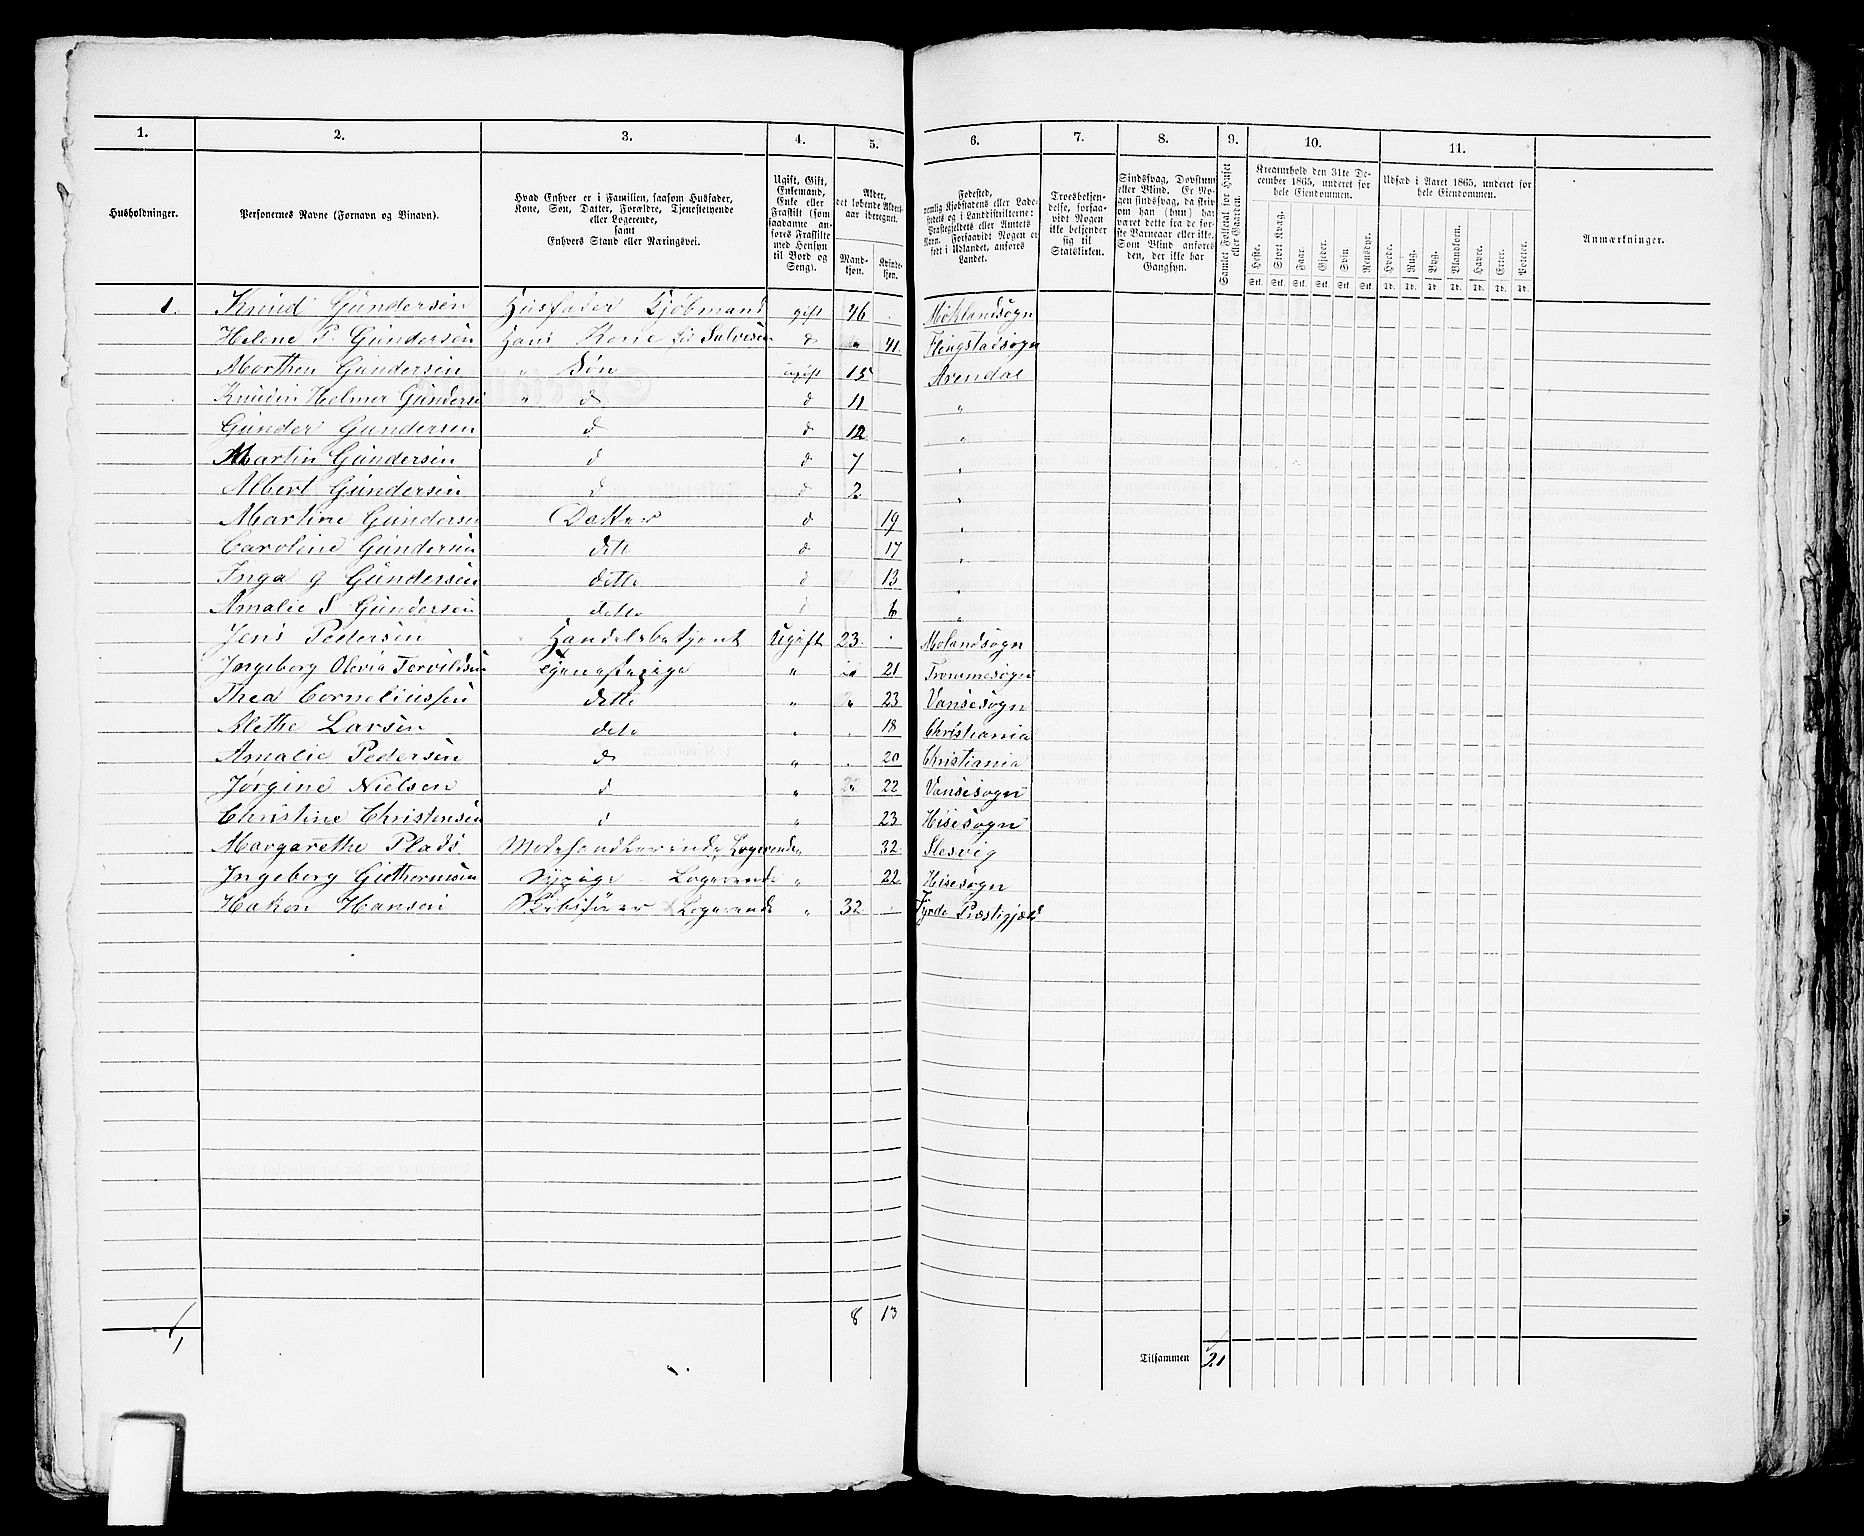 1. 2. 3. 4. 5. 6. 7. 8. 9. 10. 11.
Husholdninger.
Personernes Navne (Fornavn og Binavn).
Hvad Enhver er i Familien, saasom Husfader,
Kone, Søn, Datter, Forældre, Tjenestetyende
eller Logerende,
samt
Enhvers Stand eller Næringsvei.
Ugift, Gift,
Enkemand,
Enke eller
Fraskilt (som
saadanne an-
føres Fraskilte
med Hensyn
til Bord og
Seng).
Alder,
det løbende Alders-
aar iberegnet.
Mand-
kjøn.
Kvinde-
kjøn.
Fødested,
nemlig Kjøbstadens eller Lade-
stedets og i Landdistrikterne:
Præstegjeldets eller Amtets
Navn. Forsaavidt Nogen er
født i Udlandet, anføres
Landet.
Troesbekjen-
delse, forsaa-
vidt Nogen
ikke bekjender
sig til
Statskirken.
Sindssvag, Døvstum
eller Blind. Er No-
gen sindssvag, da skriv
om han (hun) har
været dette fra de før-
ste Barneaar eller ikke.
Som Blind anføres
den, der ikke har
Gangsyn.
Samlet Folketal for Huset
eller Gaarden.
Kreaturhold den 31te De-
cember 1865, underet for
hele Eiendommen.
Heste. Stort Kvæg. Faar. Gjeder. Svin Rensdyr.
Stk. Stk. Stk. Stk. Stk. Stk.
Udsæd i Aaret 1865, underet for
hele Eiendommen.
Hvede. Rug. Byg. Blandkorn. Havre. Erter. Poteter.
Td. Td. Td. Td. Td. Td. Td.
Anmærkninger.
1. Knud Gundersen Husfader Kjøbmand gift 46 Moklandsogn
Helene P. Gundersen Hans Kone d " 41. Flengstadsogn
Morthen Gundersen " Søn ugift 15 Arendal
Knudin Helmer Gunders " d d 11 "
Gunder Gundersen d d 12 "
Martin Gundersen d d 7 "
Albert Gundersen d d 2 "
Martine Gunderse Datter d 19 "
Caroline Gundersen dete d 17 "
Inga g Gundersen dette d 13 "
Amalie S Gundersen dette d 6 "
Jens Pedersen " Handelsbetjent Ugift 23. Molandsogn
Ingeborg Olevia Torvildsen Tjenestepige " 21 Trommesogn
Thea Corneliussen dette " 23 Vansesogn
Methe Larsen dete " 18 Christiania
Amalie Pedersen d " 20 Christiania
Jørgine Nielsen d " 22 Vansesogn
Christine Christensen d " 23 Hisesogn
Margarethe Plads Modehandlerende Logerende " 32 Slesvig
Ingeborg Guthormsen Sypige Logerende " 22 Hisesogn
Hakon Hansen Skibsfører Logerende " 32 Præstigjæld
1 8 13
Tilsammen 21